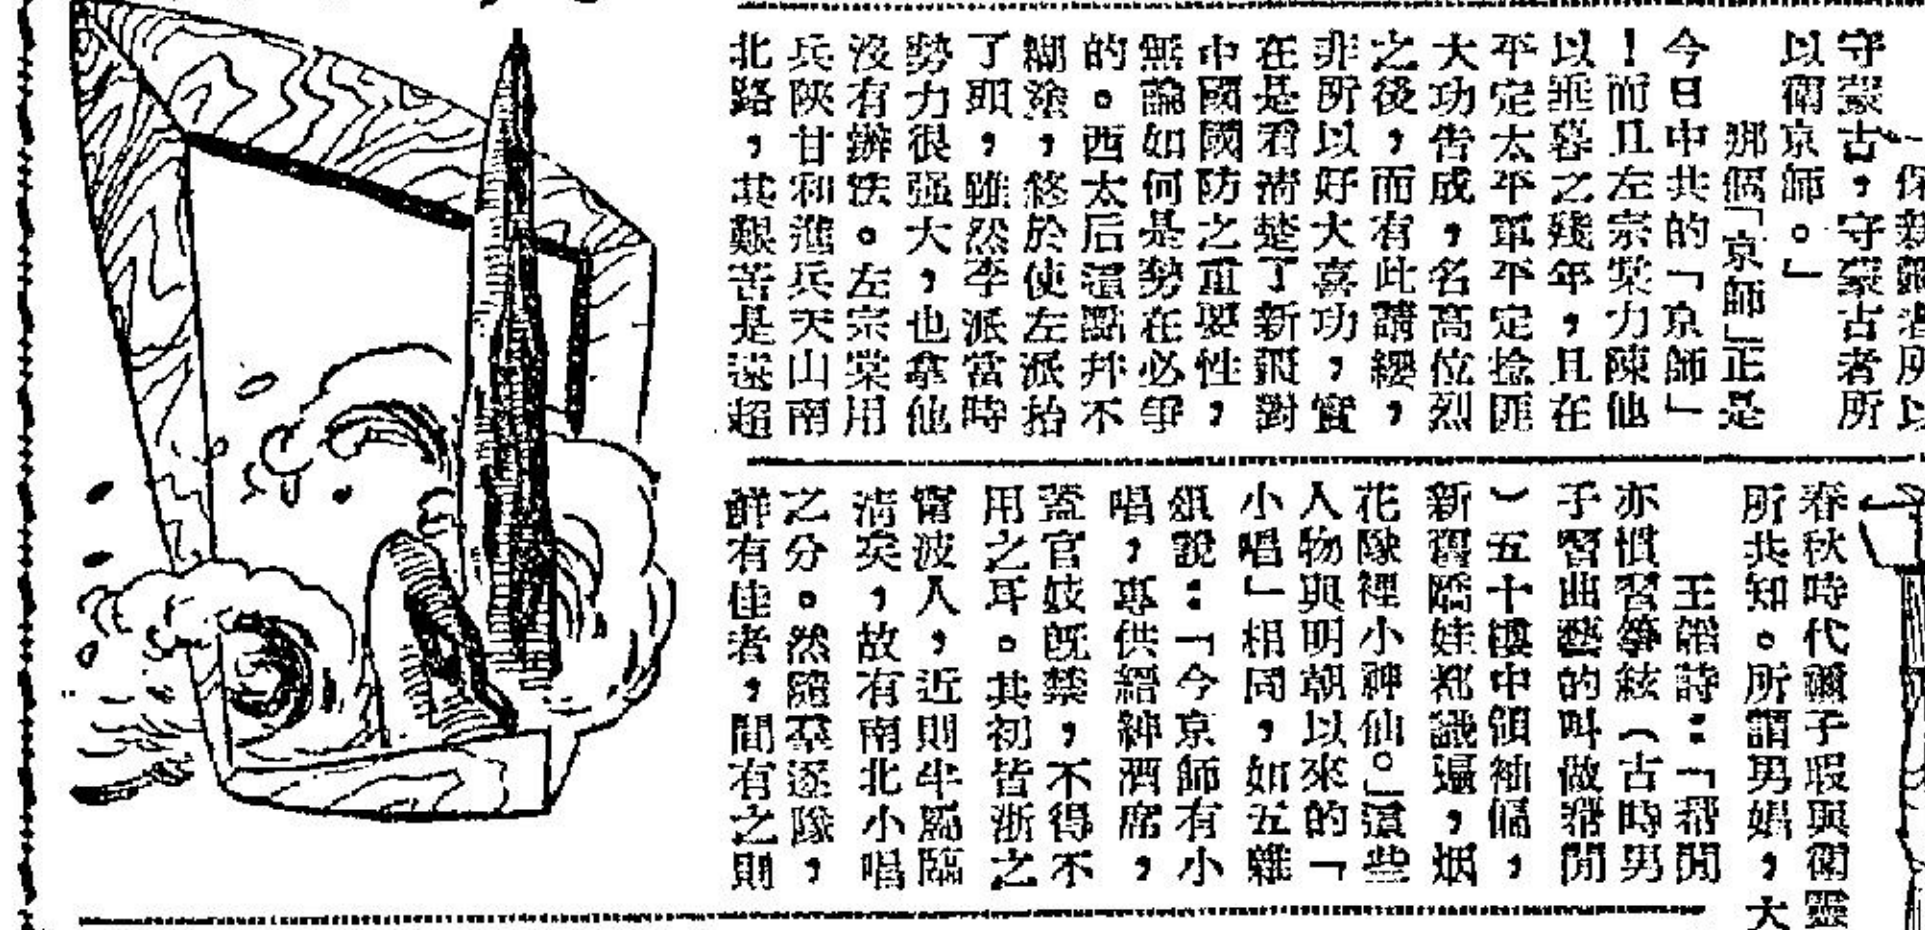 保新疆者所以
守蒙古，守蒙古者所
以衞京師。」
那個「京師」正是
今日中共的「京師」
！而且左宗棠力陳他
以垂暮之殘年，且在
平定太平軍平定捻匪
大功告成，名高位烈
之後，而有此請纓，
非所以好大喜功，實
在是看清楚了新疆對
中國國防之重要性，
無論如何是勢在必爭
的。西太后這點幷不
糊塗，終於使左派抬
了頭，雖然李派當時
勢力很强大，也拿他
沒有辦法。左宗棠用
兵陝甘和進兵天山南
北路，其艱苦是遠超
春秋時代彌子瑕與衞靈
所共知。所謂男娼，大
王諧詩：「帮閒
亦慣習箏絃（古時男
子習曲藝的叫做帮閒
）五十樓中領袖偏，
新舊嬌娃都識遍，烟
花隊裡小神仙。」這些
人物與明朝以來的「
小唱」相同，如五雜
俎說：「今京師有小
唱，專供縉紳酒席，
蓋官妓旣禁，不得不
用之耳。其初皆浙之
甯波人，近則半屬臨
淸矣，故有南北小唱
之分。然隨羣逐隊，
鮮有佳者，間有之則